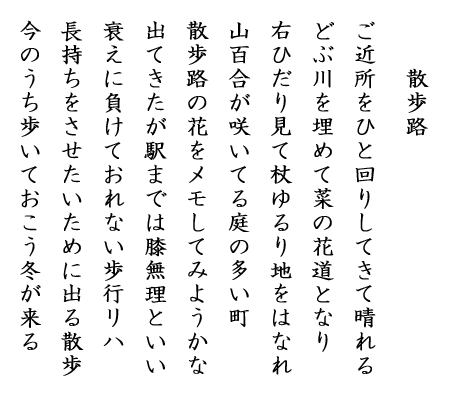 散歩路
ご近所をひと回りしてきて晴れる
どぶ川を埋めて菜の花道となり
右ひだり見て杖ゆるり地をはなれ
山百合が咲いてる庭の多い町
散歩路の花をメモしてみようかな
出てきたが駅までは膝無理といい
衰えに負けておれない歩行リハ
長持ちをさせたいために出る散歩
今のうち歩いておこう冬が来る